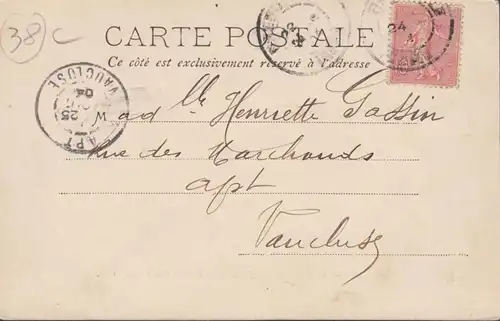 38 c
CARTE POSTALE
Ce côté est exclusivement réservé à l'adresse
24
APT
VAUCLUSE
25
04
Mad lle Henriette Gassin
Rue des Marchands
apt
Vaucluse